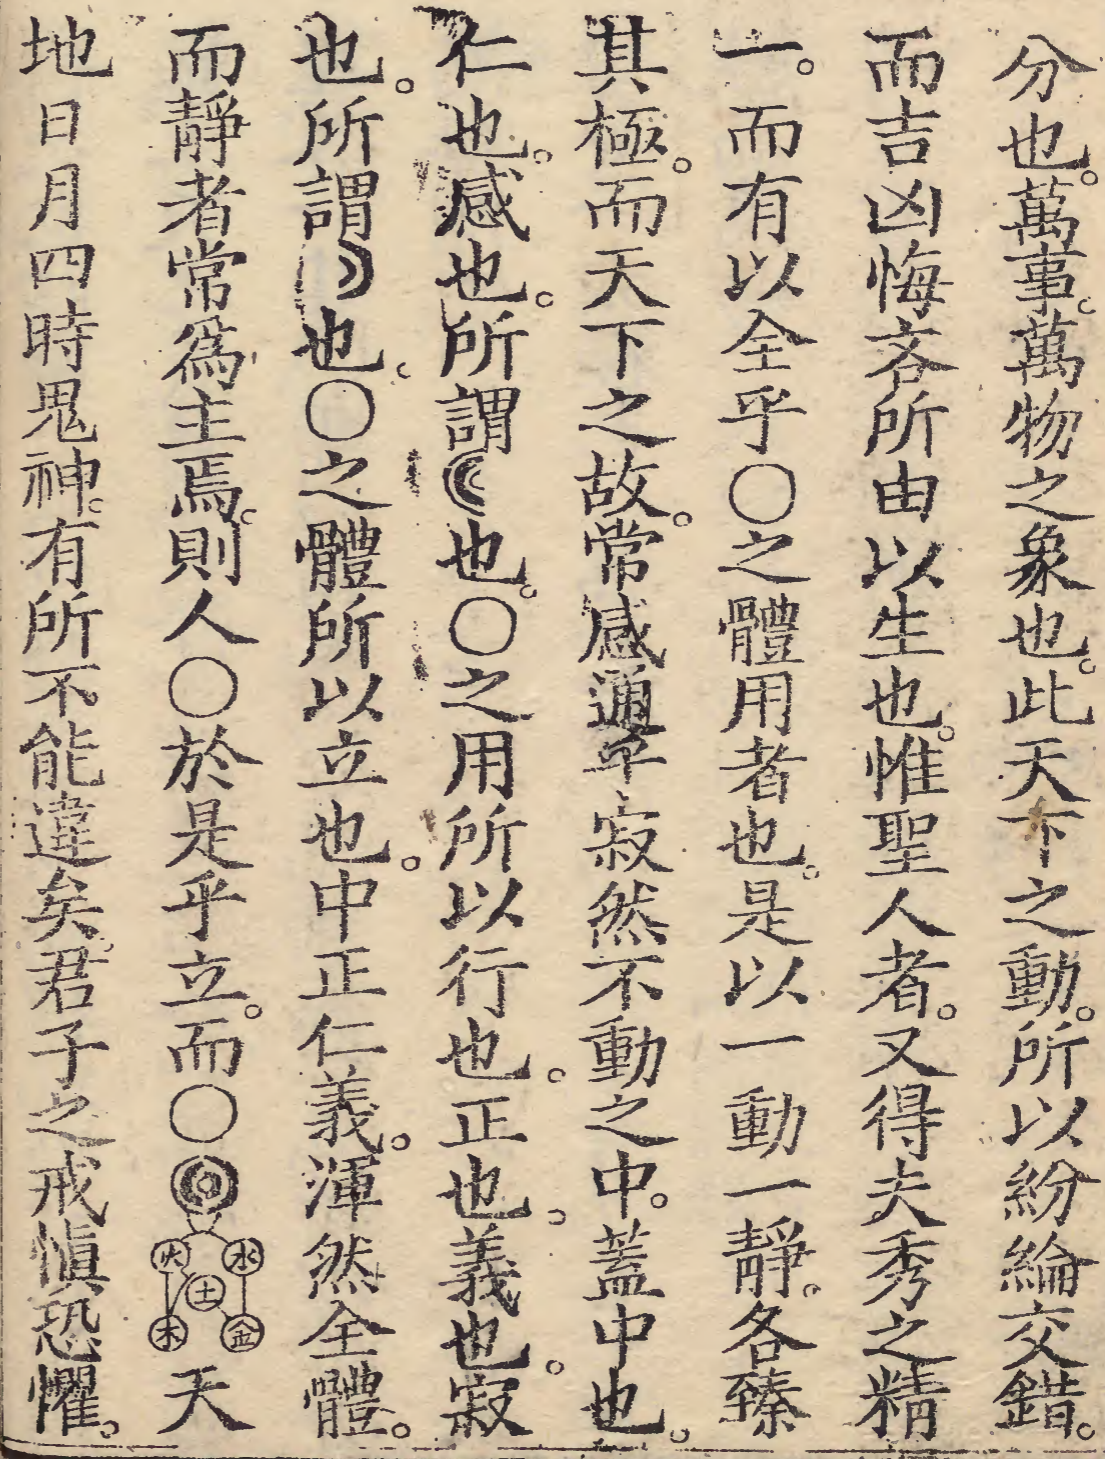 分也。萬事。萬物之象也。此天下之動。所以紛綸交錯。
而吉凶悔吝所由以生也。惟聖人者。又得夫秀之精
一。而有以全乎○之體用者也。是以一動一靜。各臻
其極。而天下之故。常感通乎寂然不動之中。蓋中也。
仁也。感也。所謂也。○之用所以行也。正也。義也。寂
也。所謂也。○之體所以立也。中正仁義。渾然全體。
而靜者常爲主焉。則人○於是乎立。而○水火土金木天
地日月四時鬼神。有所不能違矣。君子之戒愼恐懼。